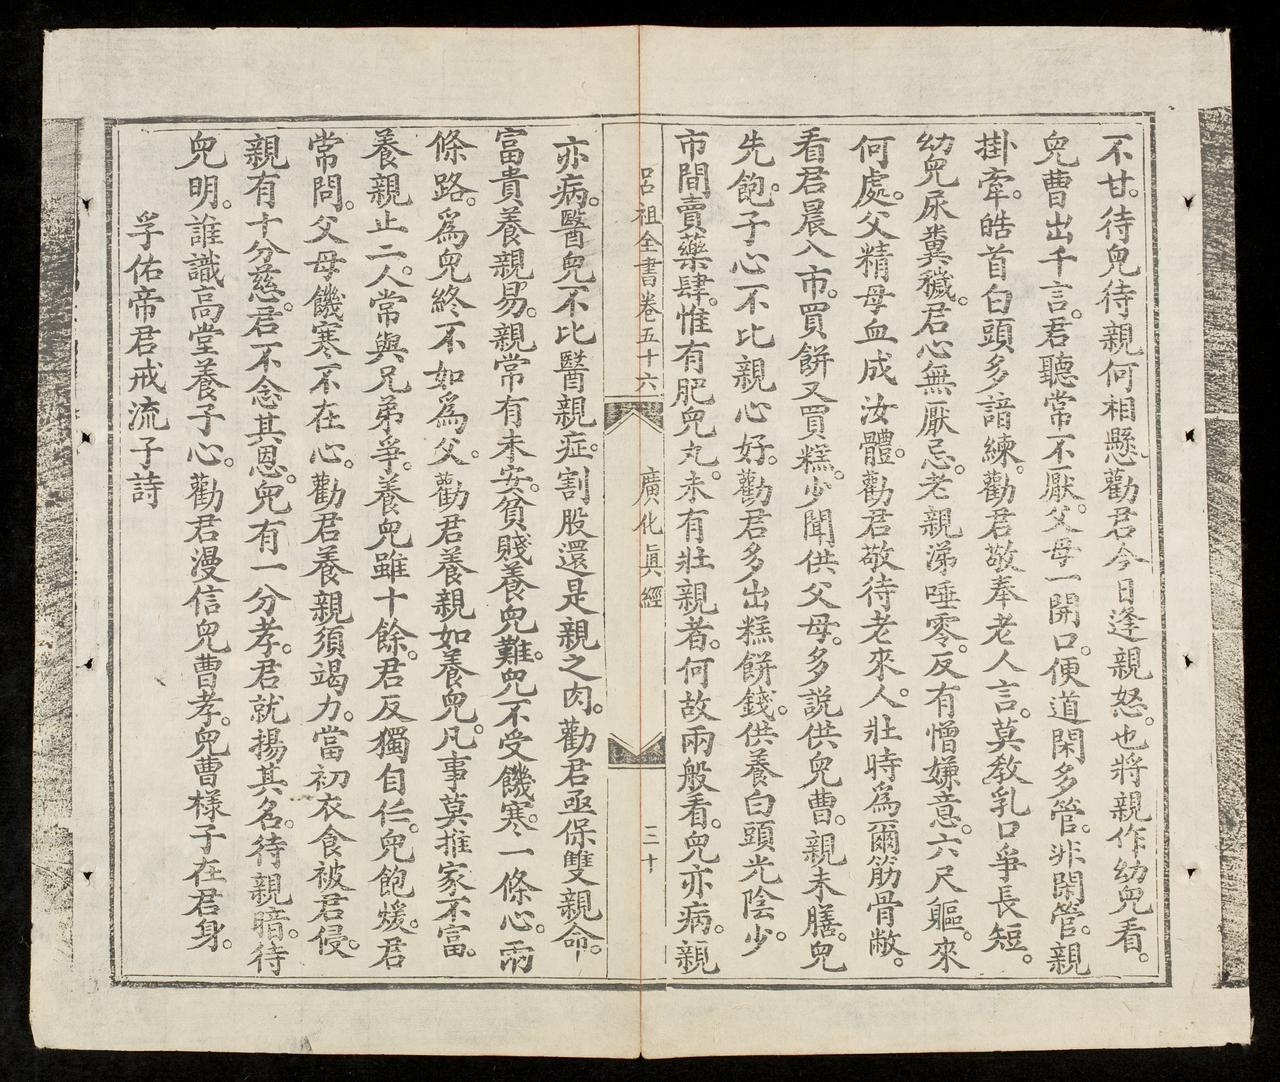 不甘。待兒待親何相懸。勸君今日逢親怒。也將親作幼兒看。
兒曹出千言。君聽常不厭。父母一開口。便道閑多管。非閑管。親
掛牽。皓首白頭多諳練。勸君敬奉老人言。莫教乳口爭長短。
幼兒尿糞穢。君心無厭忌。老親涕唾零。反有憎嫌意。六尺軀。來
何處。父精母血成汝體。勸君敬待老來人。壯時為爾筋骨敝。
看君晨入市。買餅又買糕。少聞供父母。多說供兒曹。親未膳。兒
先飽。子心不比親心好。勸君多出糕餅錢。供養白頭光陰少。
市間賣藥肆。惟有肥兒丸。未有壯親者。何故兩般看。兒亦病。親
呂祖全書卷五十六
廣化眞經
三十
亦病。醫兒不比醫親症。割股還是親之肉。勸君亟保雙親命。
富貴養親易。親常有未安。貧賤養兒難。兒不受饑寒。一條心。兩
條路。為兒終不如為父。勸君養親如養兒。凡事莫推家不富。
養親止二人。常與兄弟爭。養兒雖十餘。君反獨自仁。兒飽煖。君
常問。父母饑寒不在心。勸君養親須竭力。當初衣食被君侵。
親有十分慈。君不念其恩。兒有一分孝。君就揚其名。待親暗。待
兒明。誰識高堂養子心。勸君漫信兒曹孝。兒曹樣子在君身。
孚佑帝君戒流子詩